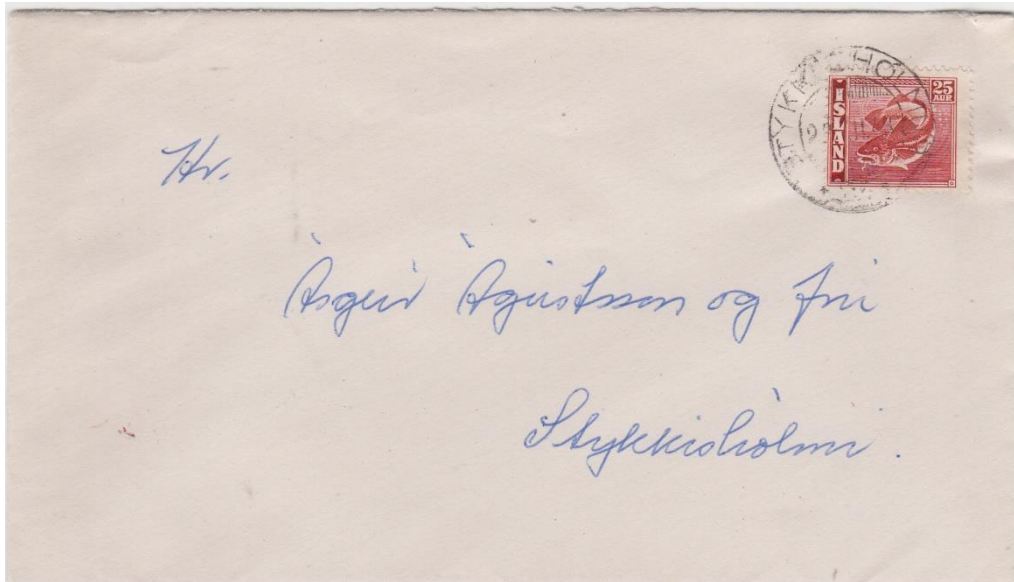 STYKKISHÓLMUR
ÍSLAND
25
AUR
Hr.
Ásgeir Ágústsson og frú
Stykkishólmi.